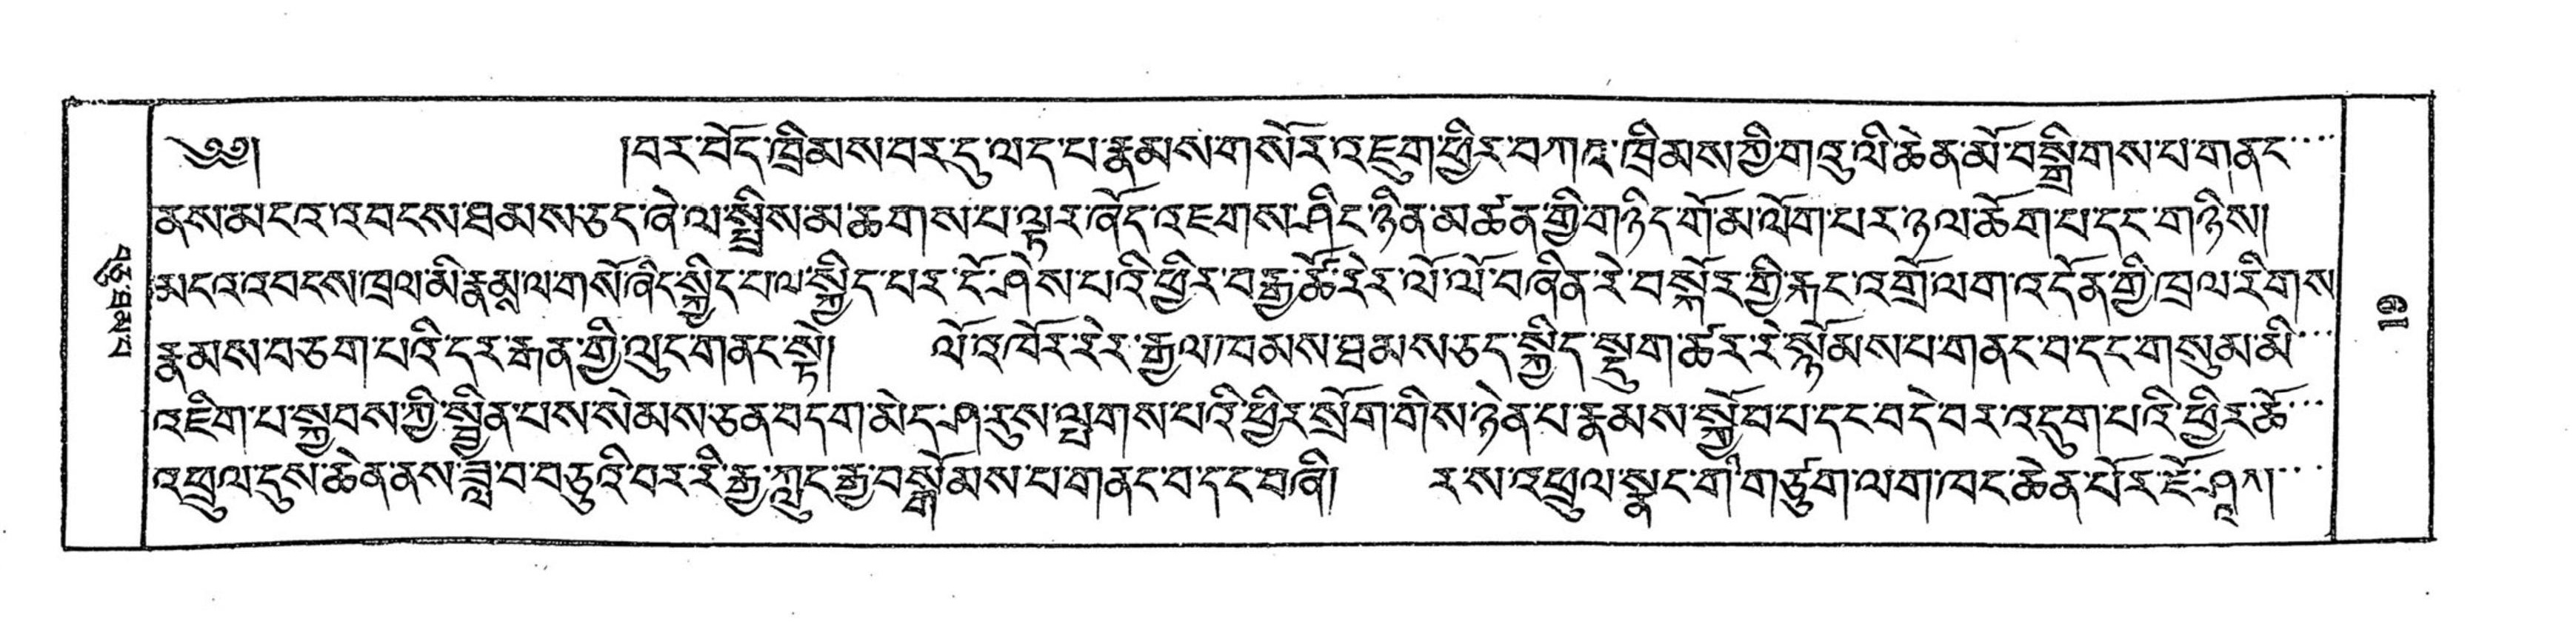 ༄༅། །བར་བོད་ཁྲིམས་བར་དུ་ལད་པ་རྣམས་གསོར་འཇུག་ཕྱིར་བཀའ་ཁྲིམས་ཀྱི་གཟུ་ལི་ཆེན་མོ་བསྒྲིགས་པ་གནང་
ནས་མངའ་འབངས་ཐམས་ཅད་ཞེ་ལ་སྤྲིས་མ་ཆགས་པ་ལྟར་ཞོད་འཇགས་ཤིང་ཉིན་མཚན་གྱི་གཉིད་གོ་མ་ལོག་པར་ཉལ་ཆོག་པ་དང་གཉིས།
མངའ་འབངས་ཁྲལ་མི་རྣམས་ལ་གསོ་ཞིང་སྐྱིད་པ་ལ་སྐྱིད་པར་ངོ་ཤེས་པའི་ཕྱིར་བརྒྱ་ཚོ་རེར་ལོ་ལོ་བཞིན་རེ་བསྐོར་གྱི་རྐང་འགྲོ་ལག་འདོན་གྱི་ཁྲལ་རིགས
རྣམས་བཅག་པའི་དར་རྒན་གྱི་ལུང་གནང་སྟེ། ལོ་འཁོར་རེར་རྒྱལ་ཁམས་ཐམས་ཅད་སྐྱིད་སྡུག་ཚར་རེ་སྙོམས་པ་གནང་བ་དང་གསུམ་མི་
འཇིག་པ་སྐྱབས་ཀྱི་སྦྱིན་པས་སེམས་ཅན་བདག་མེད་ཤ་རུས་ལྤགས་པའི་ཕྱིར་སྲོག་གིས་ཉེན་པ་རྣམས་སྐྱོབ་པ་དང་བདེ་བར་འདུག་པའི་ཕྱིར་ཆོ་
འཕྲུལ་དུས་ཆེན་ནས་ཟླ་བ་བཅུའི་བར་རི་རྒྱ་ཀླུང་རྒྱ་བསྡོམས་པ་གནང་བ་དང་བཞི། ར་ས་འཕྲུལ་སྣང་གི་གཙུག་ལག་ཁང་ཆེན་པོར་ཇོ་ཤཱཀ།
བཅུ་ཐམ་པ
༩།